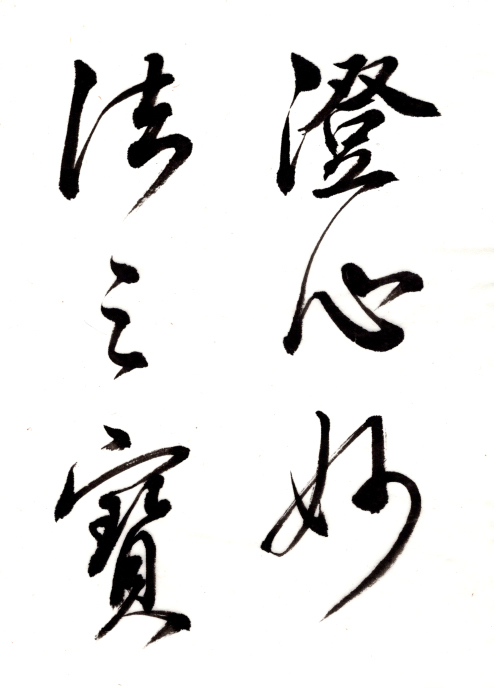 澄心妙
法之寳